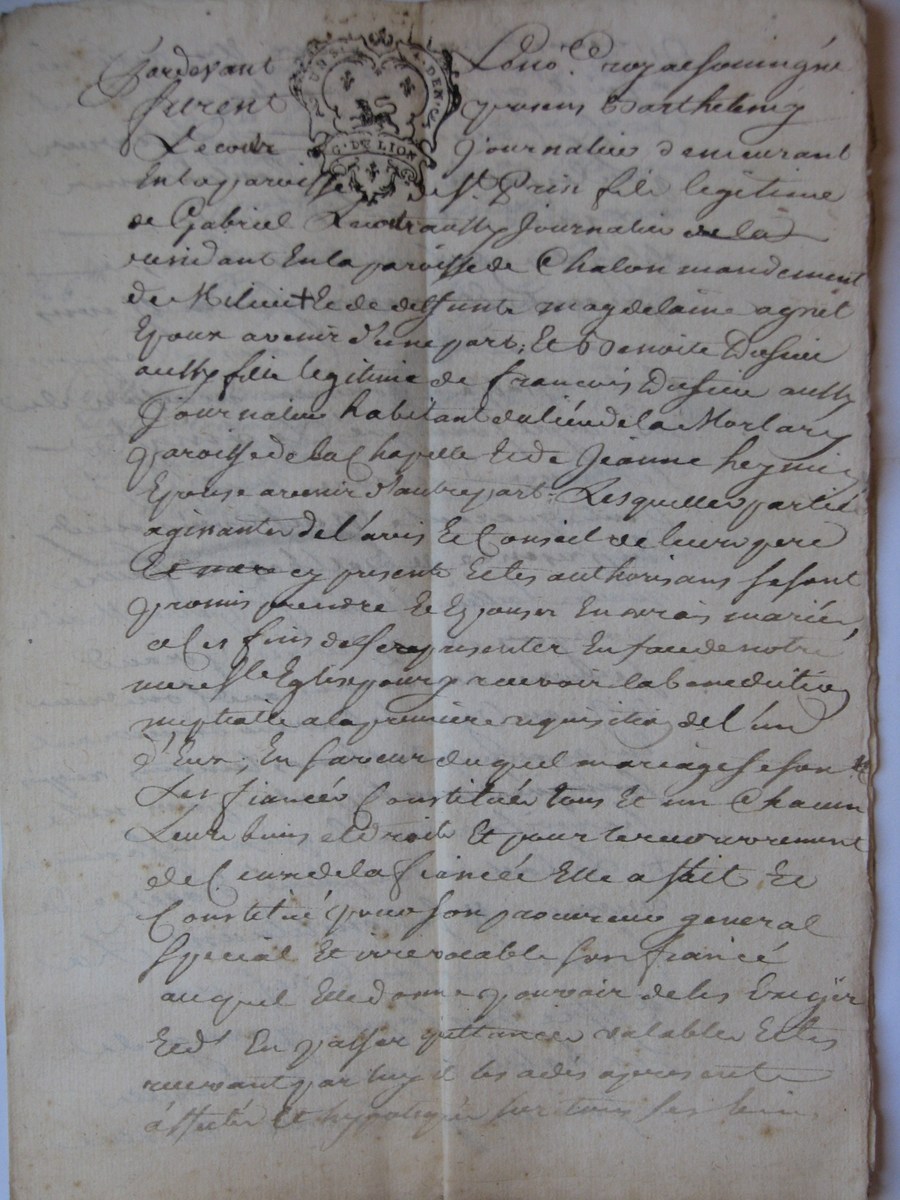 Pardevant Le no.re royal soussigné
furent présens Barthelemy
Lecour journalier demeurant
En la parroisse de St. Prin fils legitime
de Gabriel Lecour aussy journalier de la
residant En la paroisse de Chalon mandement
de Et de deffunte magdelaine agniel
Epoux avenir d'une part; Et Benoite Dussuc
aussy fille legitime de francois Dussuc aussy
journalier habitant du lieu de la Morlary
paroisse de la Chapelle Et de Jeanne
Epouse avenir d'autre part. Lesquelles parties
agissantes de l'avis Et Conseil de leurs pere
Et mere cy presents Et les authorisans se sont
promis prendre Et Epouser En vrais mariés,
a Ces fins de se representer En face de notre
mere Ste Eglise pour y recevoir la benediction
nuptialle a la premiere requisition de l'un
d'Eux; En faveur duquel mariage se son
Les fiancés Constitués tous Et un Chacun
Leurs biens et droits Et pour le recouvrement
de Ceux de la fiancée Elle a fait Et
Constitué pour son procureur general
special Et irrevocable son fiancé
auquel Elle donne pouvoir de les Exiger
En passer quittances valables Et les
recevant par luy il les a dès apresent
affectés Et hypotequés sur tous ses biens
G. DE LION